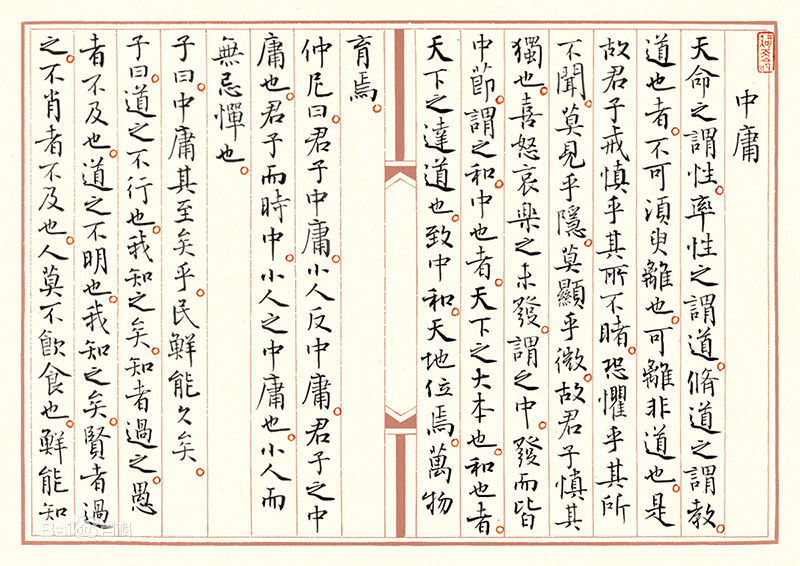 中庸
天命之謂性。率性之謂道。脩道之謂教。
道也者。不可須臾離也。可離非道也。是
故君子戒慎乎其所不睹。恐懼乎其所
不聞。莫見乎隱。莫顯乎微。故君子慎其
獨也。喜怒哀樂之未發。謂之中。發而皆
中節。謂之和。中也者。天下之大本也。和也者。
天下之達道也。致中和。天地位焉。萬物
育焉。
仲尼曰。君子中庸。小人反中庸。君子之中
庸也。君子而時中。小人之中庸也。小人而
無忌憚也。
子曰。中庸其至矣乎。民鮮能久矣。
子曰。道之不行也。我知之矣。知者過之。愚
者不及也。道之不明也。我知之矣。賢者過
之。不肖者不及也。人莫不飲食也。鮮能知
Baidu百科